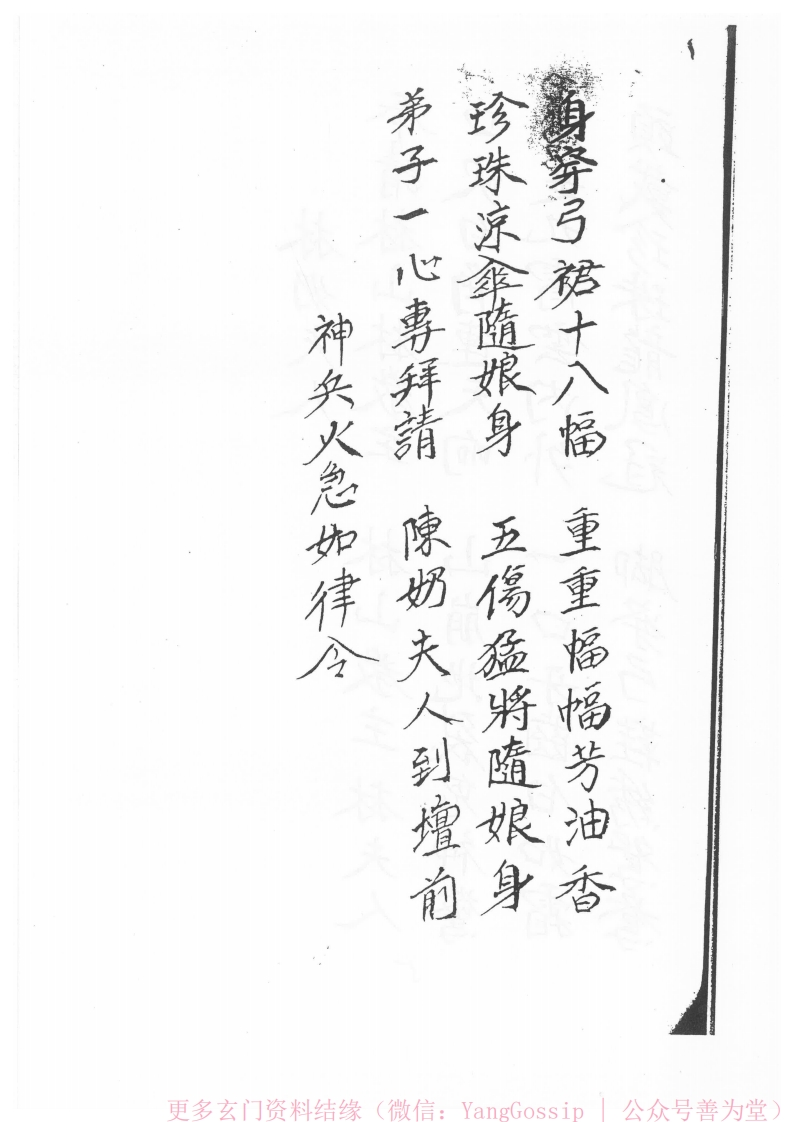 身穿弓裙十八幅　重重幅幅芳油香
珍珠涼傘隨娘身　五傷猛將隨娘身
弟子一心專拜請　陳奶夫人到壇前
神兵火急如律令
更多玄门资料结缘（微信：YangGossip | 公众号善为堂）